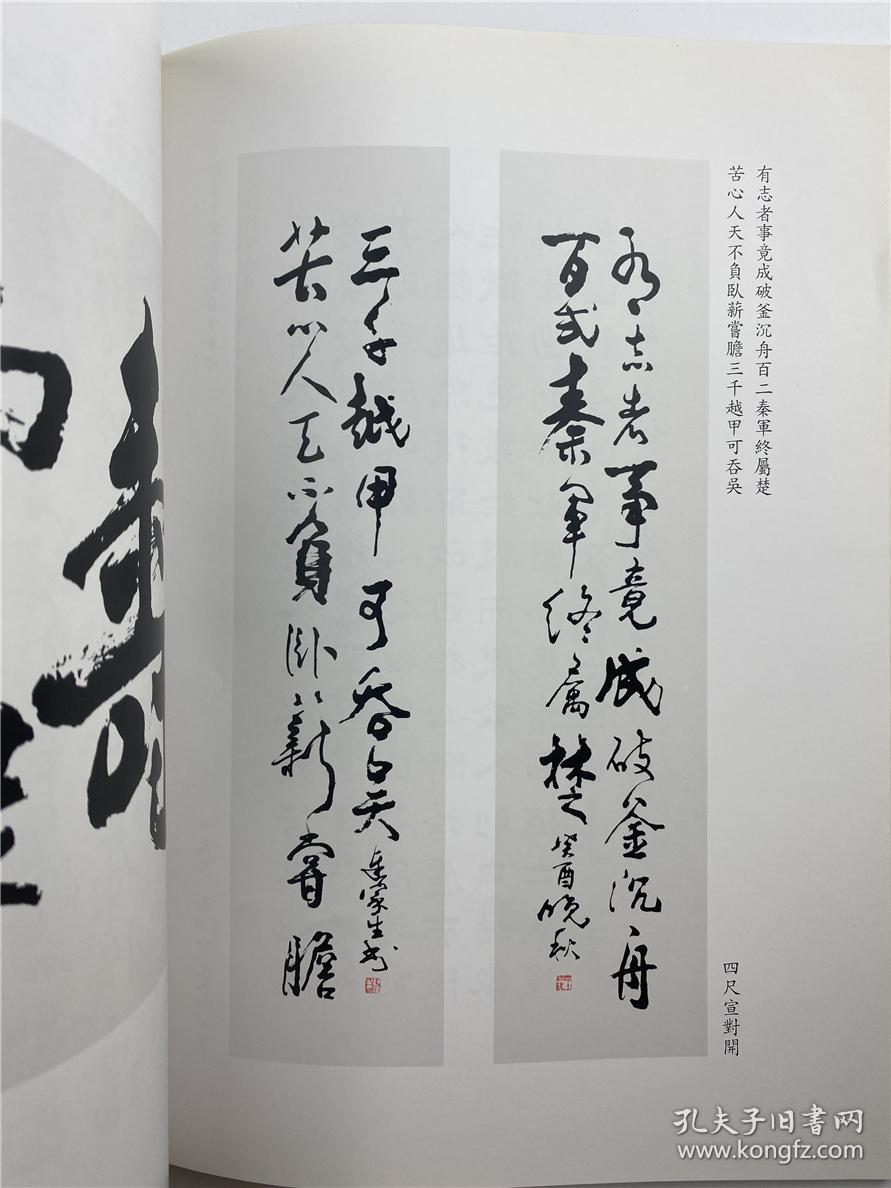 有志者事竟成破釜沉舟百二秦軍終屬楚
苦心人天不負臥薪嘗膽三千越甲可吞吳
四尺宣對開
有志者事竟成破釜沉舟
百弍秦軍終屬楚
癸酉晚秋
苦心人天不負臥薪嘗膽
三千越甲可吞吳
家生书
孔夫子旧书网
www.kongfz.com